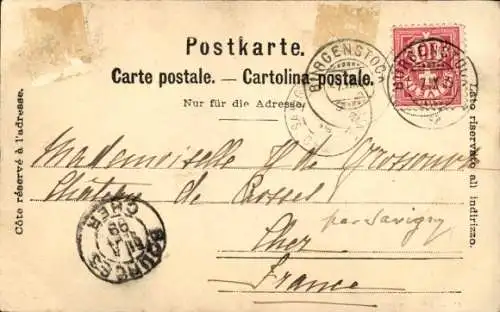 Postkarte.
Carte postale. — Cartolina postale.
Nur für die Adresse.
Côte réservé à l'adresse.
Lato riservato all indirizzo.
BÜRGENSTOCK
BÜRGENSTOCK
Mademoiselle H de Grossouvre
Château de
par Savigny
Cher
France
BOURGES
CHER